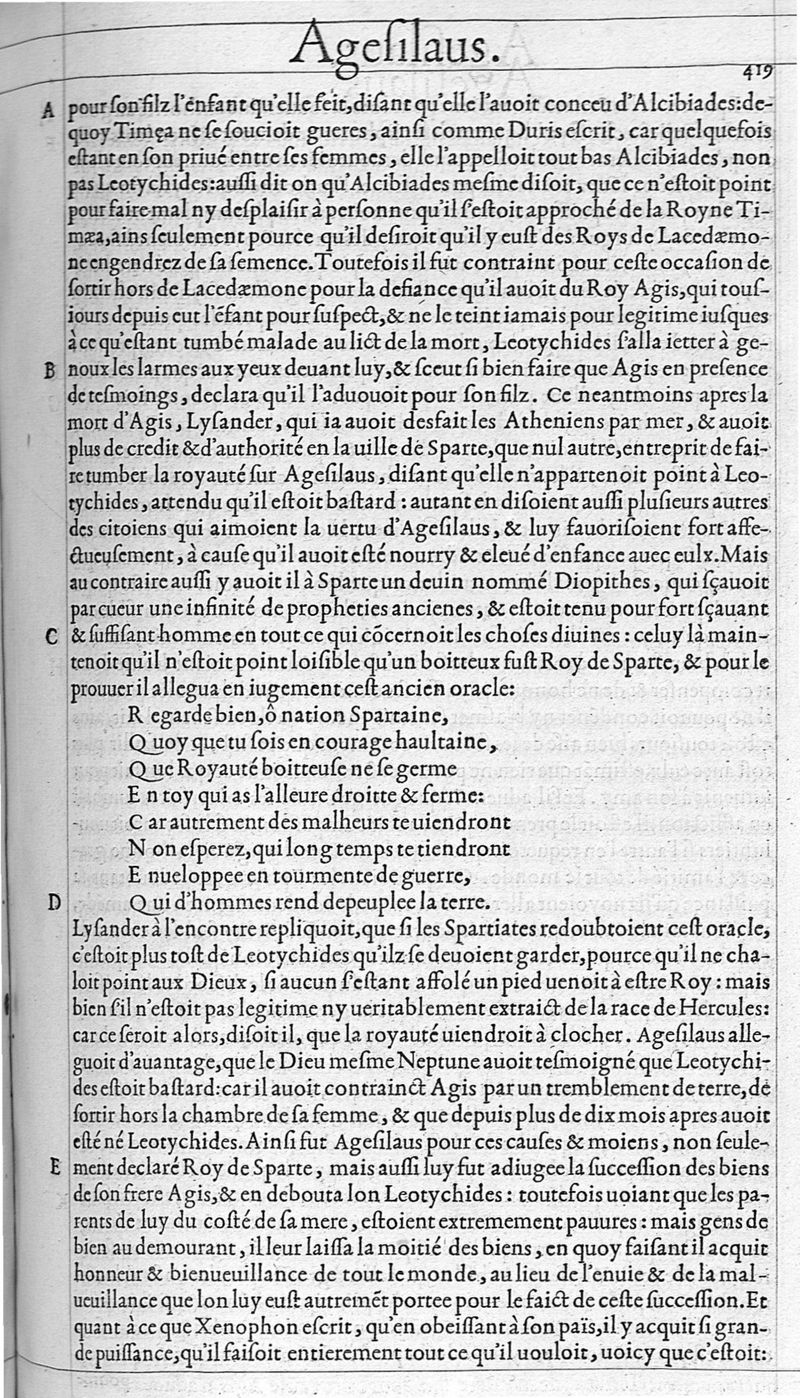 Ageſilaus.
419
A pour ſon filz l'enfant qu'elle feit, diſant qu'elle l'auoit conceu d'Alcibiades: de-
quoy Timęa ne ſe ſoucioit gueres, ainſi comme Duris eſcrit, car quelquefois
eſtant en ſon priué entre ſes femmes, elle l'appelloit tout bas Alcibiades, non
pas Leotychides: auſſi dit on qu'Alcibiades meſme diſoit, que ce n'eſtoit point
pour faire mal ny deſplaiſir à perſonne qu'il ſ'eſtoit approché de la Royne Ti-
mæa, ains ſeulement pource qu'il deſiroit qu'il y euſt des Roys de Lacedæmo-
ne engendrez de ſa ſemence. Toutefois il fut contraint pour ceſte occaſion de
ſortir hors de Lacedæmone pour la defiance qu'il auoit du Roy Agis, qui touſ-
iours depuis eut l'éfant pour ſuſpect, & ne le teint iamais pour legitime iuſques
à ce qu'eſtant tumbé malade au lict de la mort, Leotychides ſ'alla ietter à ge-
B noux les larmes aux yeux deuant luy, & ſceut ſi bien faire que Agis en preſence
de teſmoings, declara qu'il l'aduouoit pour ſon filz. Ce neantmoins apres la
mort d'Agis, Lyſander, qui ia auoit desfait les Atheniens par mer, & auoit
plus de credit & d'authorité en la uille de Sparte, que nul autre, entreprit de fai-
re tumber la royauté ſur Ageſilaus, diſant qu'elle n'appartenoit point à Leo-
tychides, attendu qu'il eſtoit baſtard: autant en diſoient auſſi pluſieurs autres
des citoiens qui aimoient la uertu d'Ageſilaus, & luy fauoriſoient fort affe-
ctueuſement, à cauſe qu'il auoit eſté nourry & eleué d'enfance auec eulx. Mais
au contraire auſſi y auoit il à Sparte un deuin nommé Diopithes, qui ſçauoit
par cueur une infinité de propheties ancienes, & eſtoit tenu pour fort ſçauant
C & ſuffiſant homme en tout ce qui cõcernoit les choſes diuines: celuy là main-
tenoit qu'il n'eſtoit point loiſible qu'un boitteux fuſt Roy de Sparte, & pour le
prouuer il allegua en iugement ceſt ancien oracle:
R egarde bien, ô nation Spartaine,
Q uoy que tu ſois en courage haultaine,
Q ue Royauté boitteuſe ne ſe germe
E n toy qui as l'alleure droitte & ferme:
C ar autrement des malheurs te uiendront
N on eſperez, qui long temps te tiendront
E nueloppee en tourmente de guerre,
D Q ui d'hommes rend depeuplee la terre.
Lyſander à l'encontre repliquoit, que ſi les Spartiates redoubtoient ceſt oracle,
c'eſtoit plus toſt de Leotychides qu'ilz ſe deuoient garder, pource qu'il ne cha-
loit point aux Dieux, ſi aucun ſ'eſtant affolé un pied uenoit à eſtre Roy: mais
bien ſ'il n'eſtoit pas legitime ny ueritablement extraict de la race de Hercules:
car ce ſeroit alors, diſoit il, que la royauté uiendroit à clocher. Ageſilaus alle-
guoit d'auantage, que le Dieu meſme Neptune auoit teſmoigné que Leotychi-
des eſtoit baſtard: car il auoit contrainct Agis par un tremblement de terre, de
ſortir hors la chambre de ſa femme, & que depuis plus de dix mois apres auoit
eſté né Leotychides. Ainſi fut Ageſilaus pour ces cauſes & moiens, non ſeule-
E ment declaré Roy de Sparte, mais auſſi luy fut adiugee la ſucceſſion des biens
de ſon frere Agis, & en debouta lon Leotychides: toutefois uoiant que les pa-
rents de luy du coſté de ſa mere, eſtoient extremement pauures: mais gens de
bien au demourant, il leur laiſſa la moitié des biens, en quoy faiſant il acquit
honneur & bienueuillance de tout le monde, au lieu de l'enuie & de la mal-
ueuillance que lon luy euſt autremẽt portee pour le faict de ceſte ſucceſſion. Et
quant à ce que Xenophon eſcrit, qu'en obeiſſant à ſon païs, il y acquit ſi gran-
de puiſſance, qu'il faiſoit entierement tout ce qu'il uouloit, uoicy que c'eſtoit: